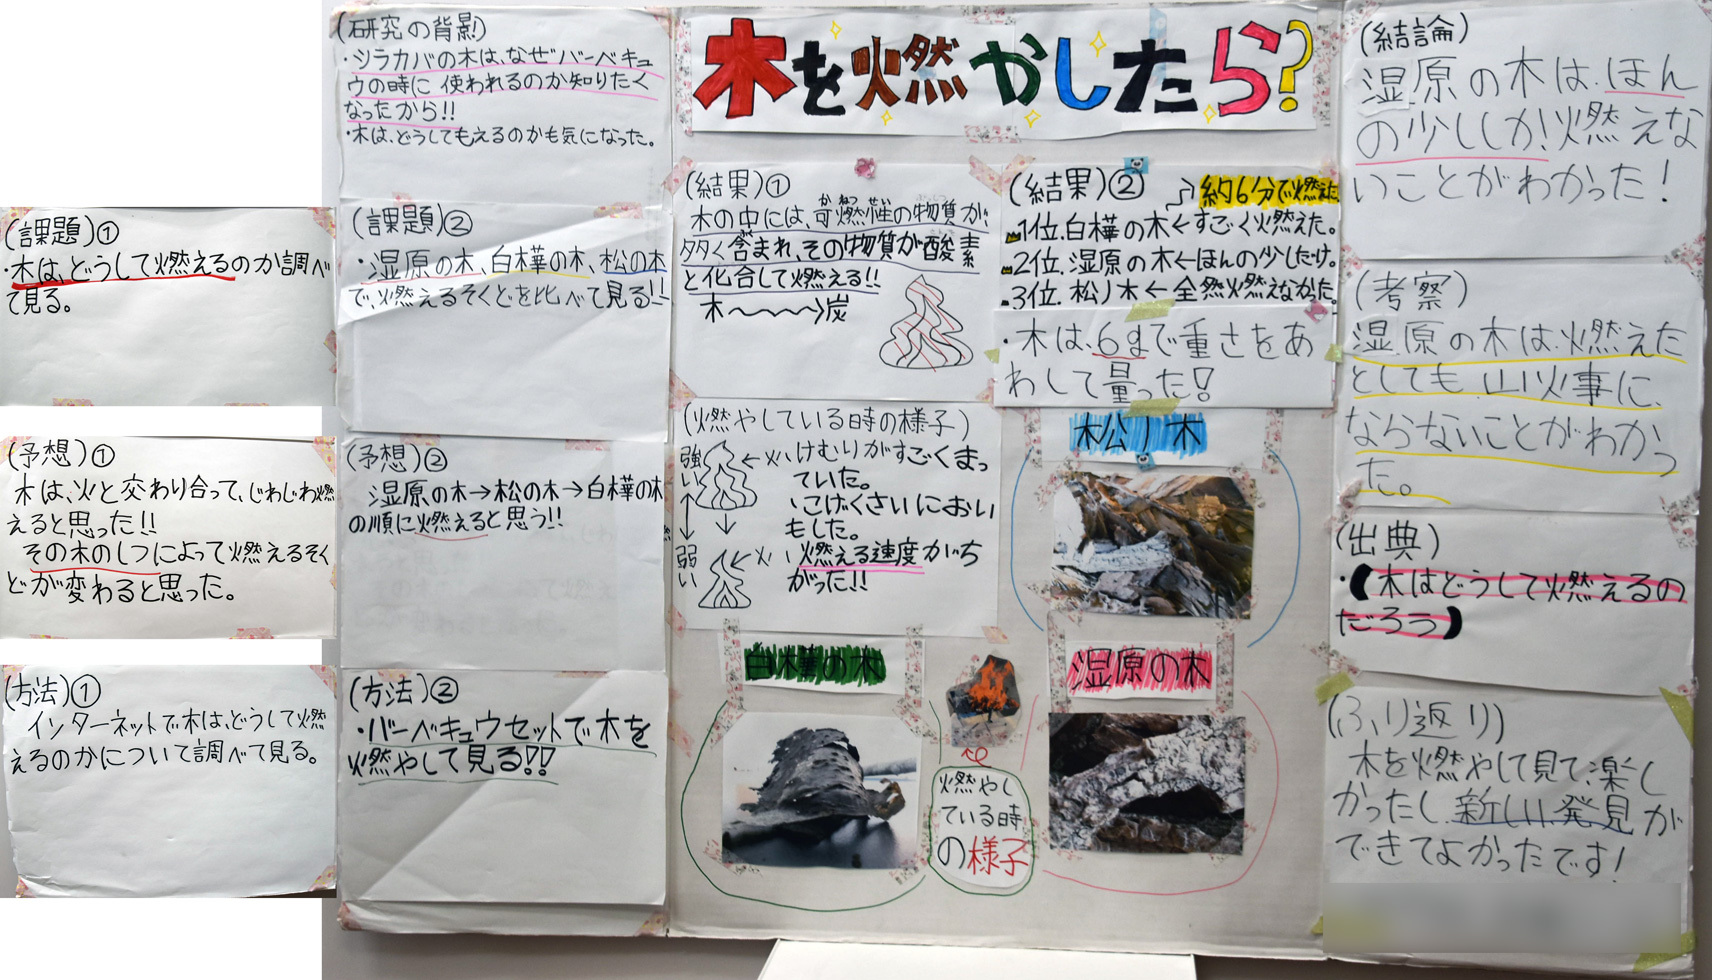 木を燃やしたら?
(研究の背景)
・シラカバの木は、なぜバーベキュ
ウの時に使われるのか知りたく
なったから!!
・木は、どうしてもえるのかも気になった。
(課題)①
・木は、どうして燃えるのか調べ
て見る。
(課題)②
・湿原の木、白樺の木、松の木
で、燃えるそくどを比べて見る!!
(予想)①
木は、火と交わり合って、じわじわ燃
えると思った!!
その木のしつによって燃えるそく
どが変わると思った。
(予想)②
湿原の木→松の木→白樺の木
の順に燃えると思う!!
(方法)①
インターネットで木は、どうして燃
えるのかについて調べて見る。
(方法)②
・バーベキュウセットで木を
燃やして見る!!
(結果)①
木の中には、可燃性の物質が、
かねつせい
多く含まれ、その物質が酸素
と化合して燃える!!
木〜〜〜〉炭
(結果)②
約6分で燃えた
1位.白樺の木←すごく燃えた。
2位.湿原の木←ほんの少しだけ。
3位.松ノ木←全然燃えなかった。
・木は、6gまで重さをあ
わして量った!
(燃やしている時の様子)
強い
↕
弱い
←火
火
・けむりがすごくまっ
ていた。
・こげくさいにおい
もした。
・燃える速度がち
がった!!
松ノ木
白樺の木
湿原の木
燃やし
ている時
の様子
(結論)
湿原の木は、ほん
の少ししか!燃えな
いことがわかった!
(考察)
湿原の木は、燃えた
としても、山火事に、
ならないことがわかっ
た。
(出典)
・【木はどうして燃えるの
だろう】
(ふり返り)
木を燃やして見て、楽し
かったし、新しい、発見が
できてよかったです!